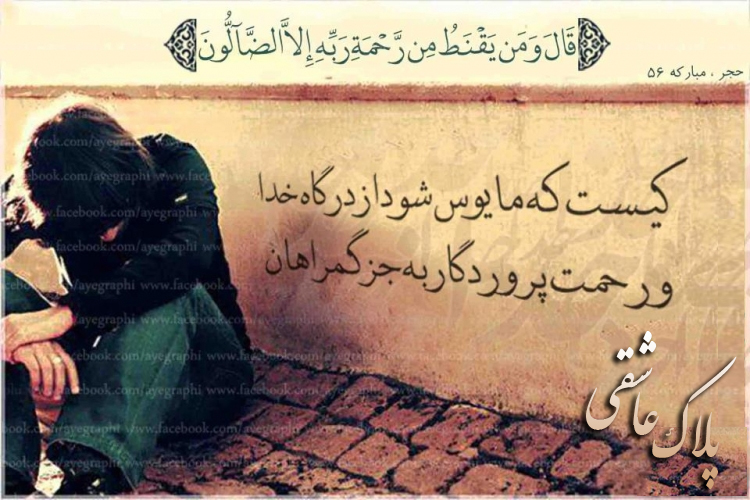 قَالَ وَمَن يَقْنَطُ مِن رَّحْمَةِ رَبِّهِ إِلاَّ الضَّآلُّونَ
حجر ، مبارکه ۵۶
کیست که مایوس شود از درگاه خدا
و رحمت پروردگار به جز گمراهان
پلاک عاشقی
www.facebook.com/ayegraphi www.facebook.com/ayegraphi